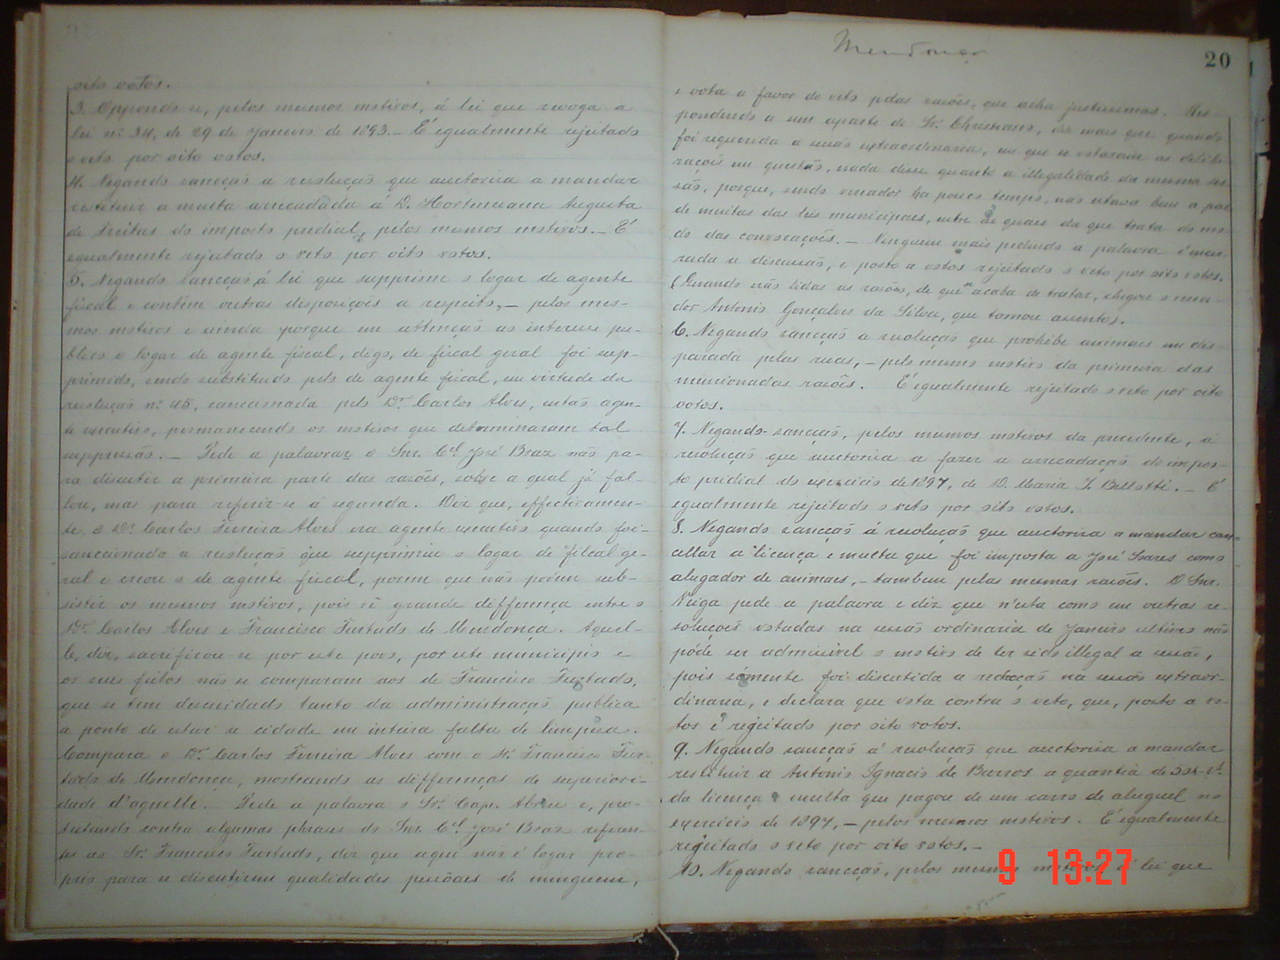 oito votos.
3. Oppondo-se, pelos mesmos motivos, á lei que revoga a
lei nº 34, de 29 de Janeiro de 1893. — É igualmente rejeitado
o veto por oito votos.
4. Negando sancção a resolução que auctorisa a mandar
restituir a multa arrecadada á D. Hortenciana Augusta
de Freitas do imposto predial, pelos mesmos motivos. — É
igualmente rejeitado o veto por oito votos.
5. Negando sancção á lei que supprime o logar de agente
fiscal e contém outras disposições a respeito, — pelos mes-
mos motivos e ainda porque em attenção ao interesse pu-
blico o logar de agente fiscal, digo, de fiscal geral foi sup-
primido, sendo substituido pelo de agente fiscal, em virtude da
resolução nº 45, sanccionada pelo Dr. Carlos Alves, então agen-
te executivo, permanecendo os motivos que determinaram tal
suppressão. — Pede a palavra o Snr. Cel. José Braz não pa-
ra discutir a primeira parte das razões, sobre a qual já fal-
lou, mas para referir-se á segunda. Diz que, effectivamen-
te, o Dr. Carlos Ferreira Alves era agente executivo quando foi
sanccionada a resolução que supprimiu o logar de fiscal ge-
ral e creou o de agente fiscal, porem que não podem sub-
sistir os mesmos motivos, pois é grande differença entre o
Dr. Carlos Alves e Francisco Furtado de Mendonça. Aquel-
le, diz, sacrificou-se por este povo, por este municipio e
os seus feitos não se comparam aos de Francisco Furtado,
que se tem descuidado tanto da administração publica
a ponto de estar a cidade em inteira falta de limpeza.
Compara o Dr. Carlos Ferreira Alves com o Sr. Francisco Fur-
tado de Mendonça, mostrando as differenças de superiori-
dade d'aquelle. Pede a palavra o Sr. Cap. Abreu e, pro-
testando contra algumas phrases do Snr. Cel. José Braz referen-
tes ao Sr. Francisco Furtado, diz que aqui não é logar pro-
prio para se discutirem qualidades pessoaes de ninguem,
Mendonça
20
e vota a favor do veto pelas razões, que acha justissimas. Res-
pondendo a um aparte do Sr. Christiano, diz mais que quando
foi requerida a sessão extraordinaria, em que se votaram as delibe-
rações em questão, nada disse quanto a illegalidade da mesma ses-
são, porque, sendo vereador ha pouco tempo, não estava bem a par
de muitas das leis municipaes, entre as quaes da que trata do mo-
do das convocações. — Ninguem mais pedindo a palavra é encer-
rada a discussão, e posto a votos rejeitado o veto por oito votos.
(Quando são lidas as razões, de que acaba de tratar, chegou o verea-
dor Antonio Gonçalves da Silva, que tomou assento).
6. Negando sancção a resolução que prohibe animaes em dis-
parada pelas ruas, — pelo mesmo motivo da primeira das
mencionadas razões. É igualmente rejeitado o veto por oito
votos.
7. Negando sancção, pelos mesmos motivos da precedente, á
resolução que auctorisa a fazer a arrecadação do impos-
to predial do exercicio de 1897, de D. Maria J. Bellotti. — É
igualmente rejeitado o veto por oito votos.
8. Negando sancção á resolução que auctorisa a mandar can-
cellar a licença e multa que foi imposta a José Soares como
alugador de animaes, — tambem pelas mesmas razões. O Snr.
Veiga pede a palavra e diz que n'esta como em outras re-
soluções votadas na sessão ordinaria de Janeiro ultimo não
póde ser admissivel o motivo de ter sido illegal a sessão,
pois sómente foi discutida a redacção na sessão extraor-
dinaria, e declara que vota contra o veto, que, posto a vo-
tos é rejeitado por oito votos.
9. Negando sancção á resolução que auctorisa a mandar
restituir a Antonio Ignacio de Barros a quantia de
da licença e multa que pagou de um carro de aluguel no
exercicio de 1897, — pelos mesmos motivos. É igualmente
rejeitado o veto por oito votos. —
10. Negando sancção, pelos mesmos motivos, á lei que
9 13:27